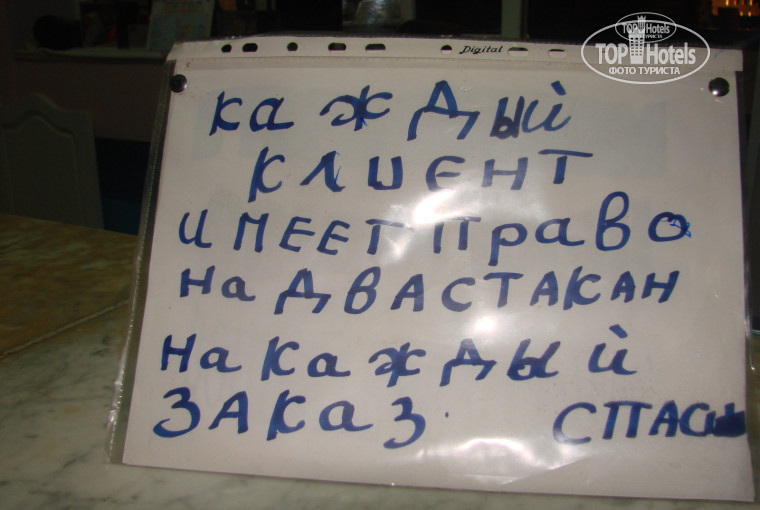 Digital
TOP Hotels
ФОТО ТУРИСТА
каждый
клиент
имеет право
на двастакан
на каждый
заказ спаси